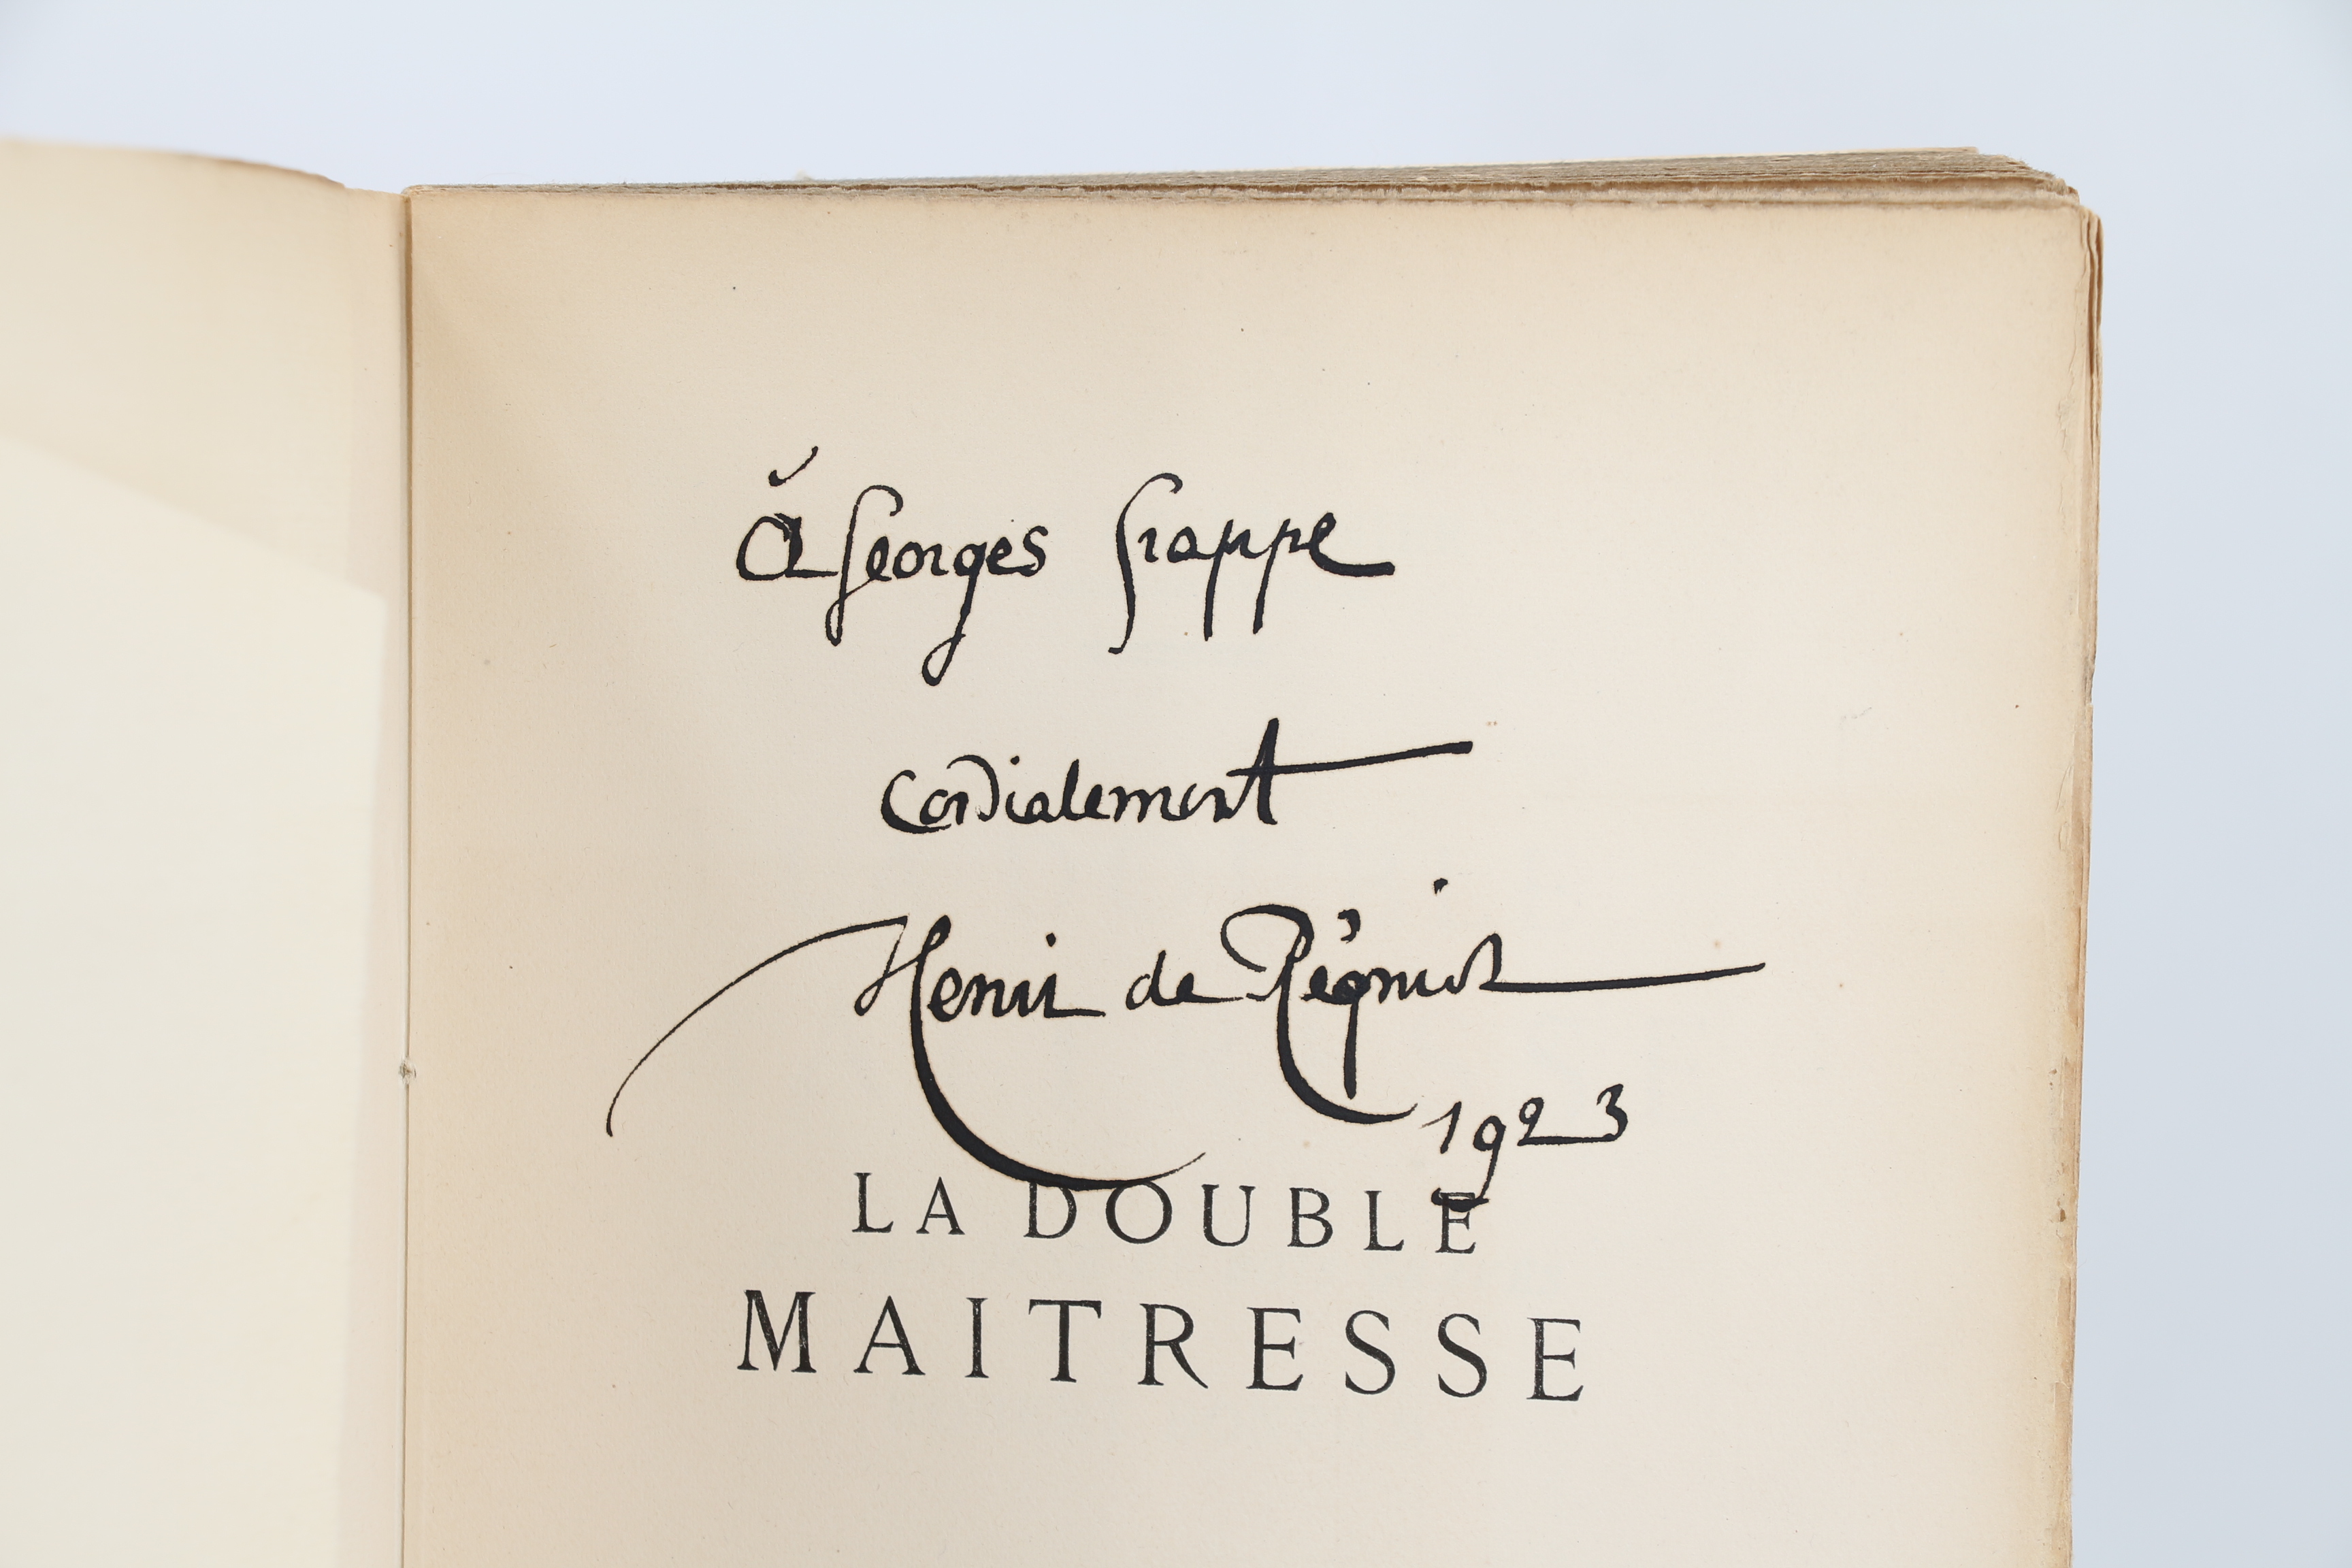 à Georges Grappe
cordialement
Henri de Régnier
1923
LA DOUBLE
MAITRESSE